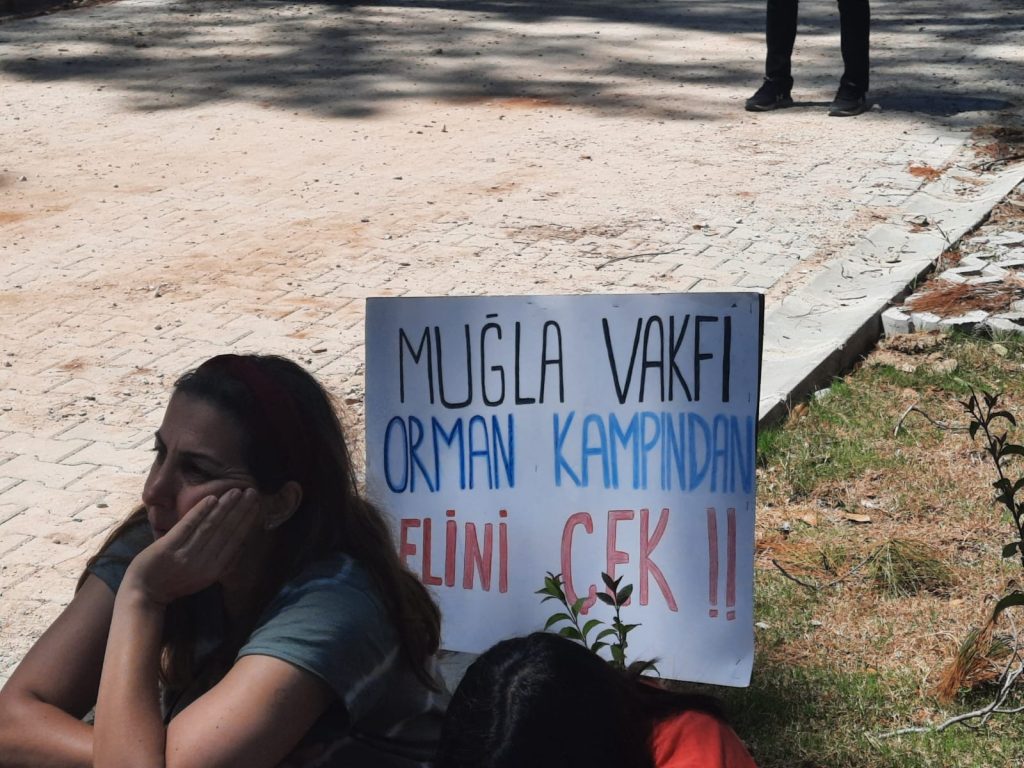 MUĞLA VAKFİ
ORMAN KAMPINDAN
ELİNİ ÇEK !!